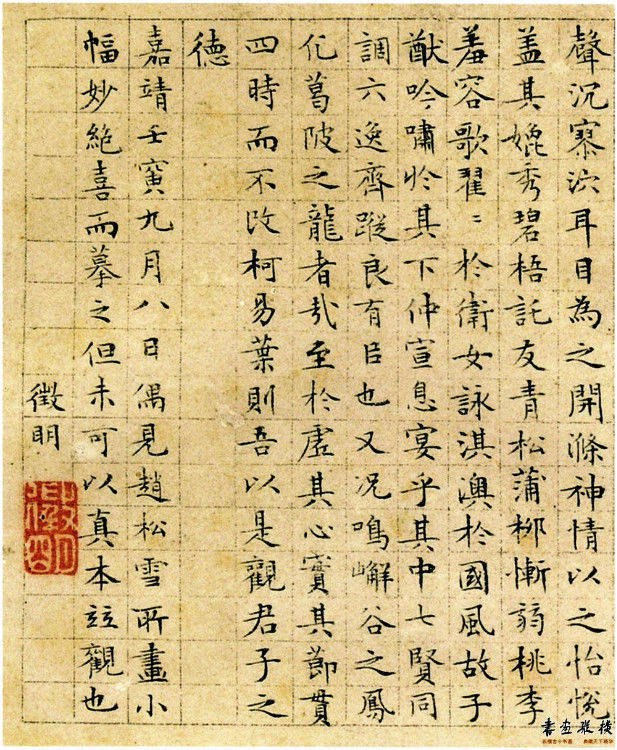 聲沉寥泬耳目為之開滌神情以之怡悅
盖其媲秀碧梧託友青松蒲栁慚弱桃李
羞容歌翟〻於衛女詠淇澳於國風故子
猷吟嘯於其下仲宣息宴乎其中七賢同
調六逸齊蹤良有㠯也又况鳴嶰谷之鳳
化葛陂之龍者㦲至於虛其心實其節貫
四時而不改柯易葉則吾以是觀君子之
德
嘉靖壬寅九月八日偶見趙松雪所畫小
幅妙絶喜而摹之但未可以真本竝觀也
徵明
徵明
書画縱橫